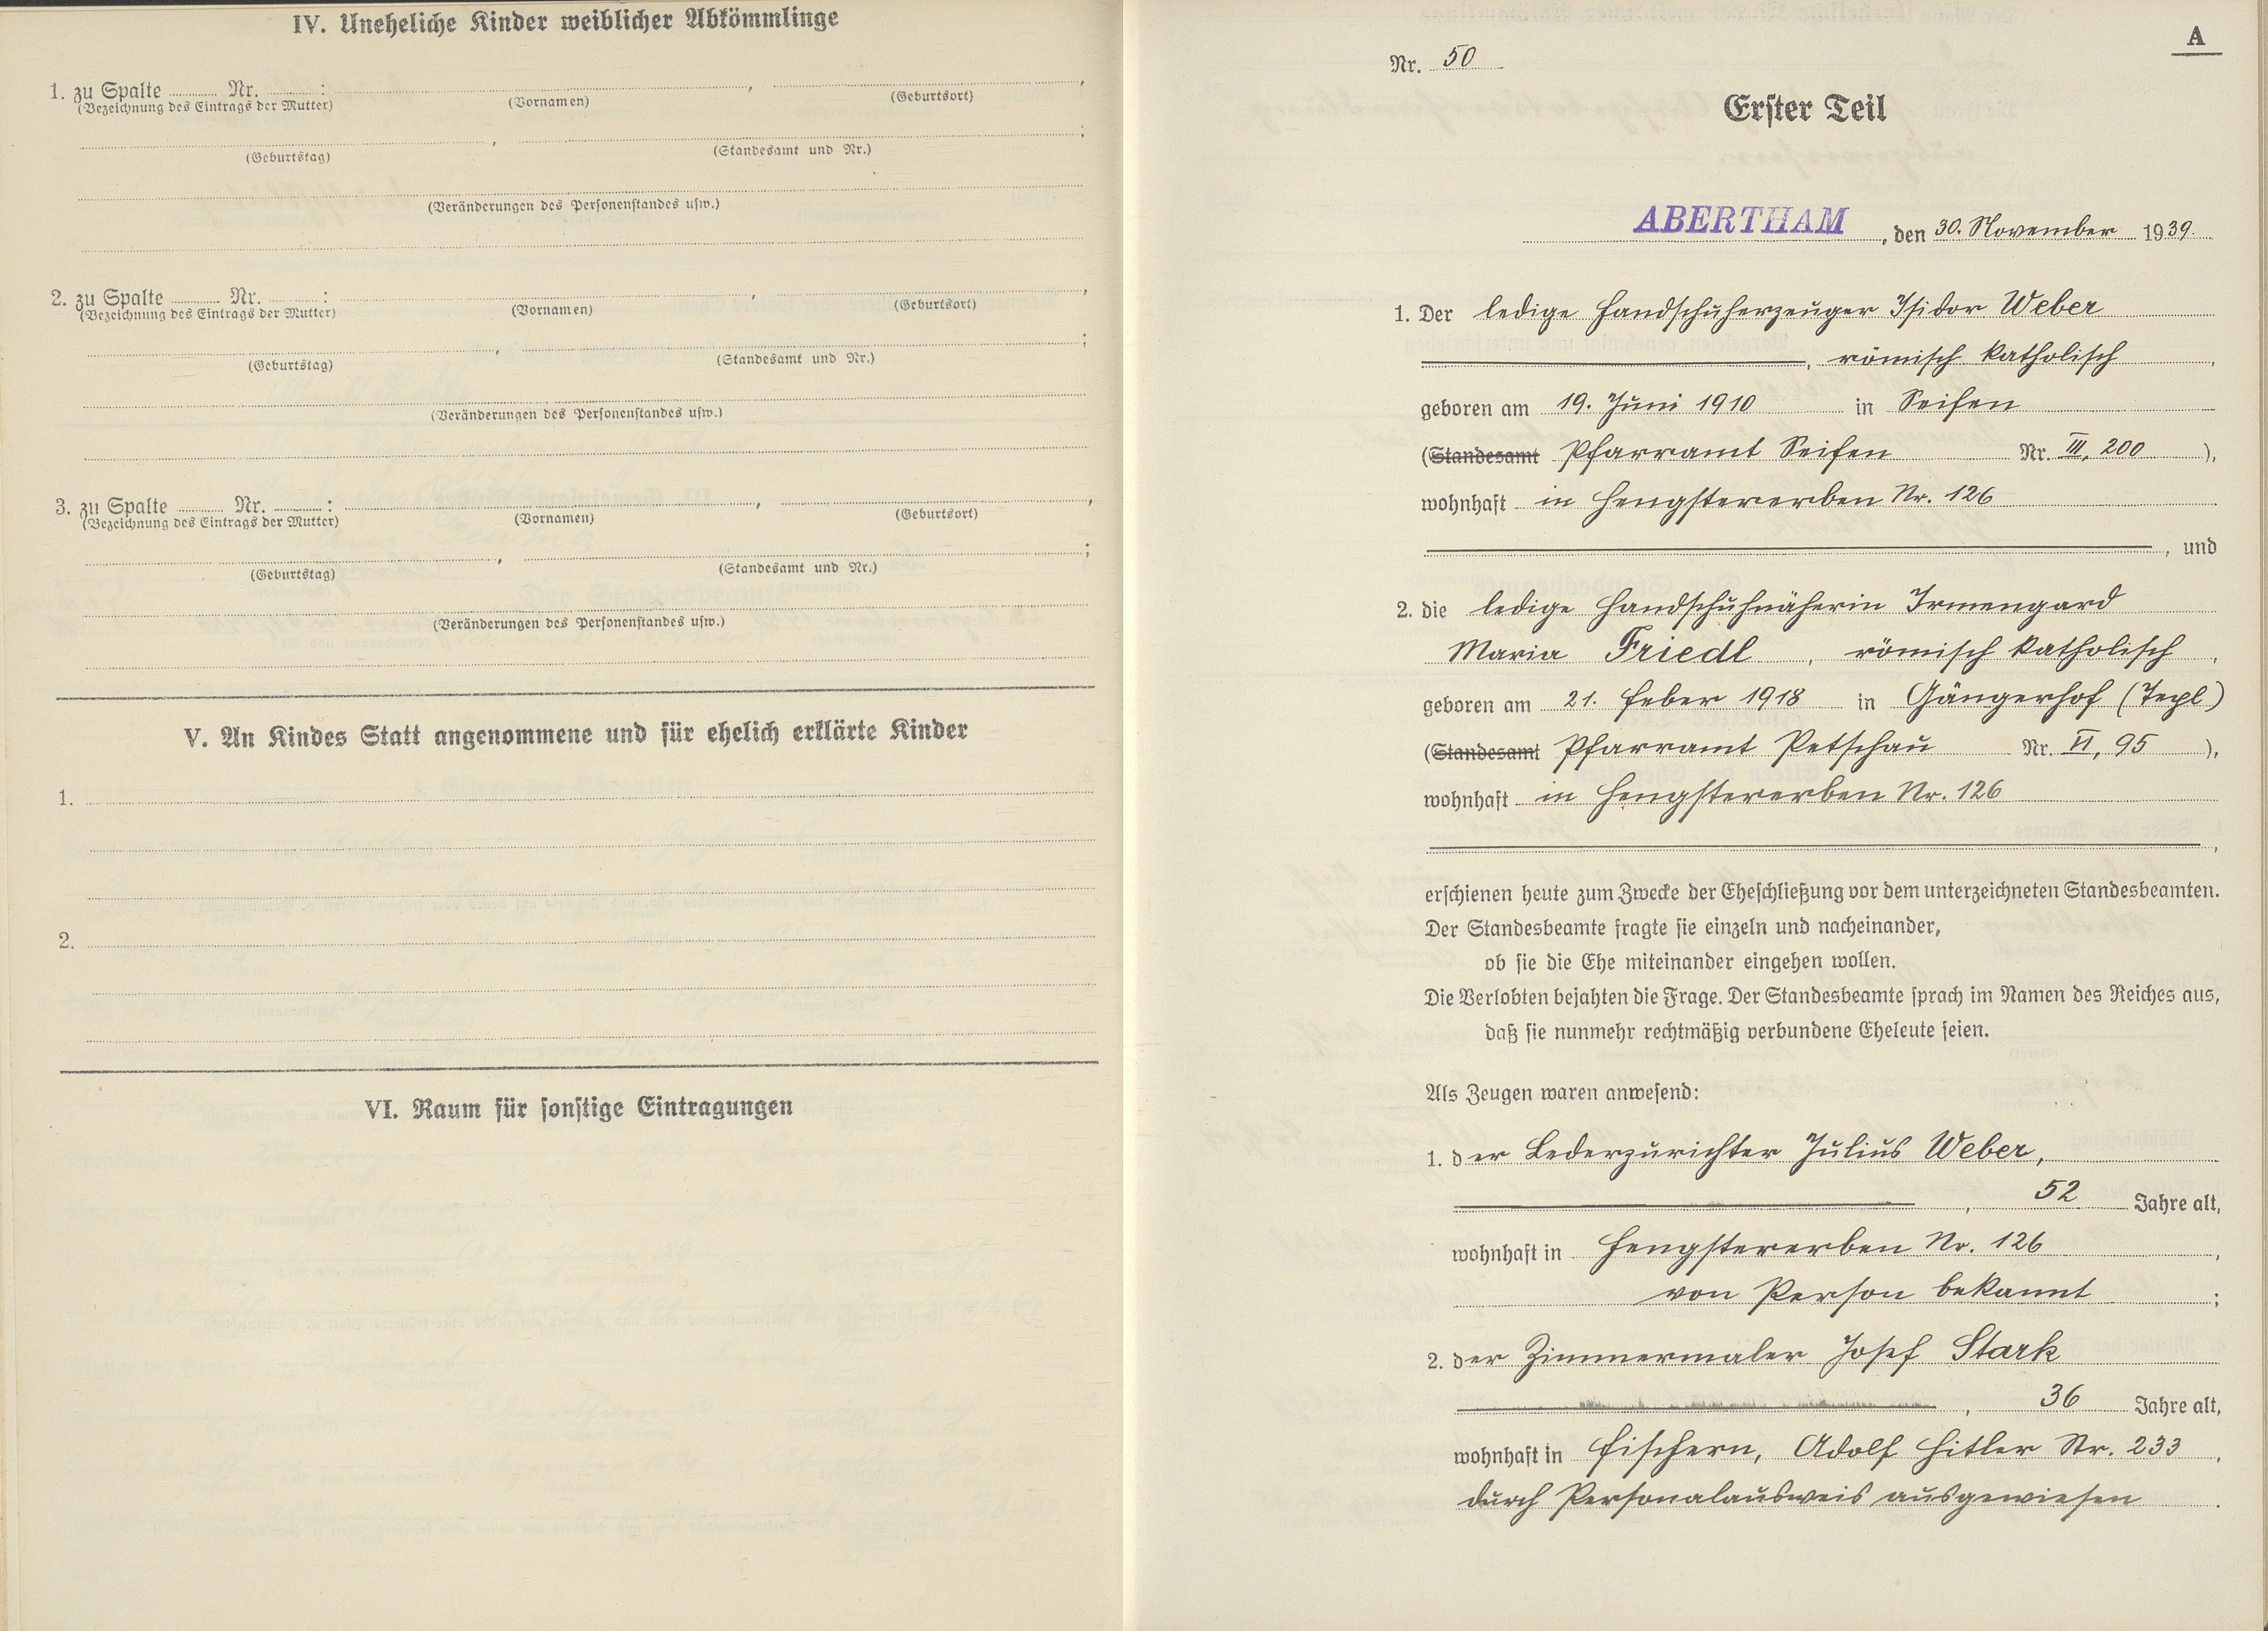 IV. Uneheliche Kinder weiblicher Abkömmlinge
1. zu Spalte ........ Nr. ........ : ........ , ........ ,
(Bezeichnung des Eintrags der Mutter) (Vornamen) (Geburtsort)
........ , ........ ;
(Geburtstag) (Standesamt und Nr.)
(Veränderungen des Personenstandes usw.)
2. zu Spalte ........ Nr. ........ : ........ , ........ ,
(Bezeichnung des Eintrags der Mutter) (Vornamen) (Geburtsort)
........ , ........ ;
(Geburtstag) (Standesamt und Nr.)
(Veränderungen des Personenstandes usw.)
3. zu Spalte ........ Nr. ........ : ........ , ........ ,
(Bezeichnung des Eintrags der Mutter) (Vornamen) (Geburtsort)
........ , ........ ;
(Geburtstag) (Standesamt und Nr.)
(Veränderungen des Personenstandes usw.)
V. An Kindes Statt angenommene und für ehelich erklärte Kinder
1.
2.
VI. Raum für sonstige Eintragungen
A
Nr. 50
Erster Teil
ABERTHAM, den 30. November 1939.
1. Der ledige Handschuherzeuger Isidor Weber
, römisch katholisch,
geboren am 19. Juni 1910 in Seifen
(Standesamt Pfarramt Seifen Nr. III, 200),
wohnhaft in Hengstererben Nr. 126
, und
2. die ledige Handschuhnäherin Irmengard
Maria Friedl, römisch katholisch,
geboren am 21. Feber 1918 in Gängerhof (Tepl)
(Standesamt Pfarramt Petschau Nr. VI, 95),
wohnhaft in Hengstererben Nr. 126
,
erschienen heute zum Zwecke der Eheschließung vor dem unterzeichneten Standesbeamten.
Der Standesbeamte fragte sie einzeln und nacheinander,
ob sie die Ehe miteinander eingehen wollen.
Die Verlobten bejahten die Frage. Der Standesbeamte sprach im Namen des Reiches aus,
daß sie nunmehr rechtmäßig verbundene Eheleute seien.
Als Zeugen waren anwesend:
1. der Lederzurichter Julius Weber,
, 52 Jahre alt,
wohnhaft in Hengstererben Nr. 126,
von Person bekannt;
2. der Zimmermaler Josef Stark
, 36 Jahre alt,
wohnhaft in Fischern, Adolf Hitler Str. 233,
durch Personalausweis ausgewiesen.